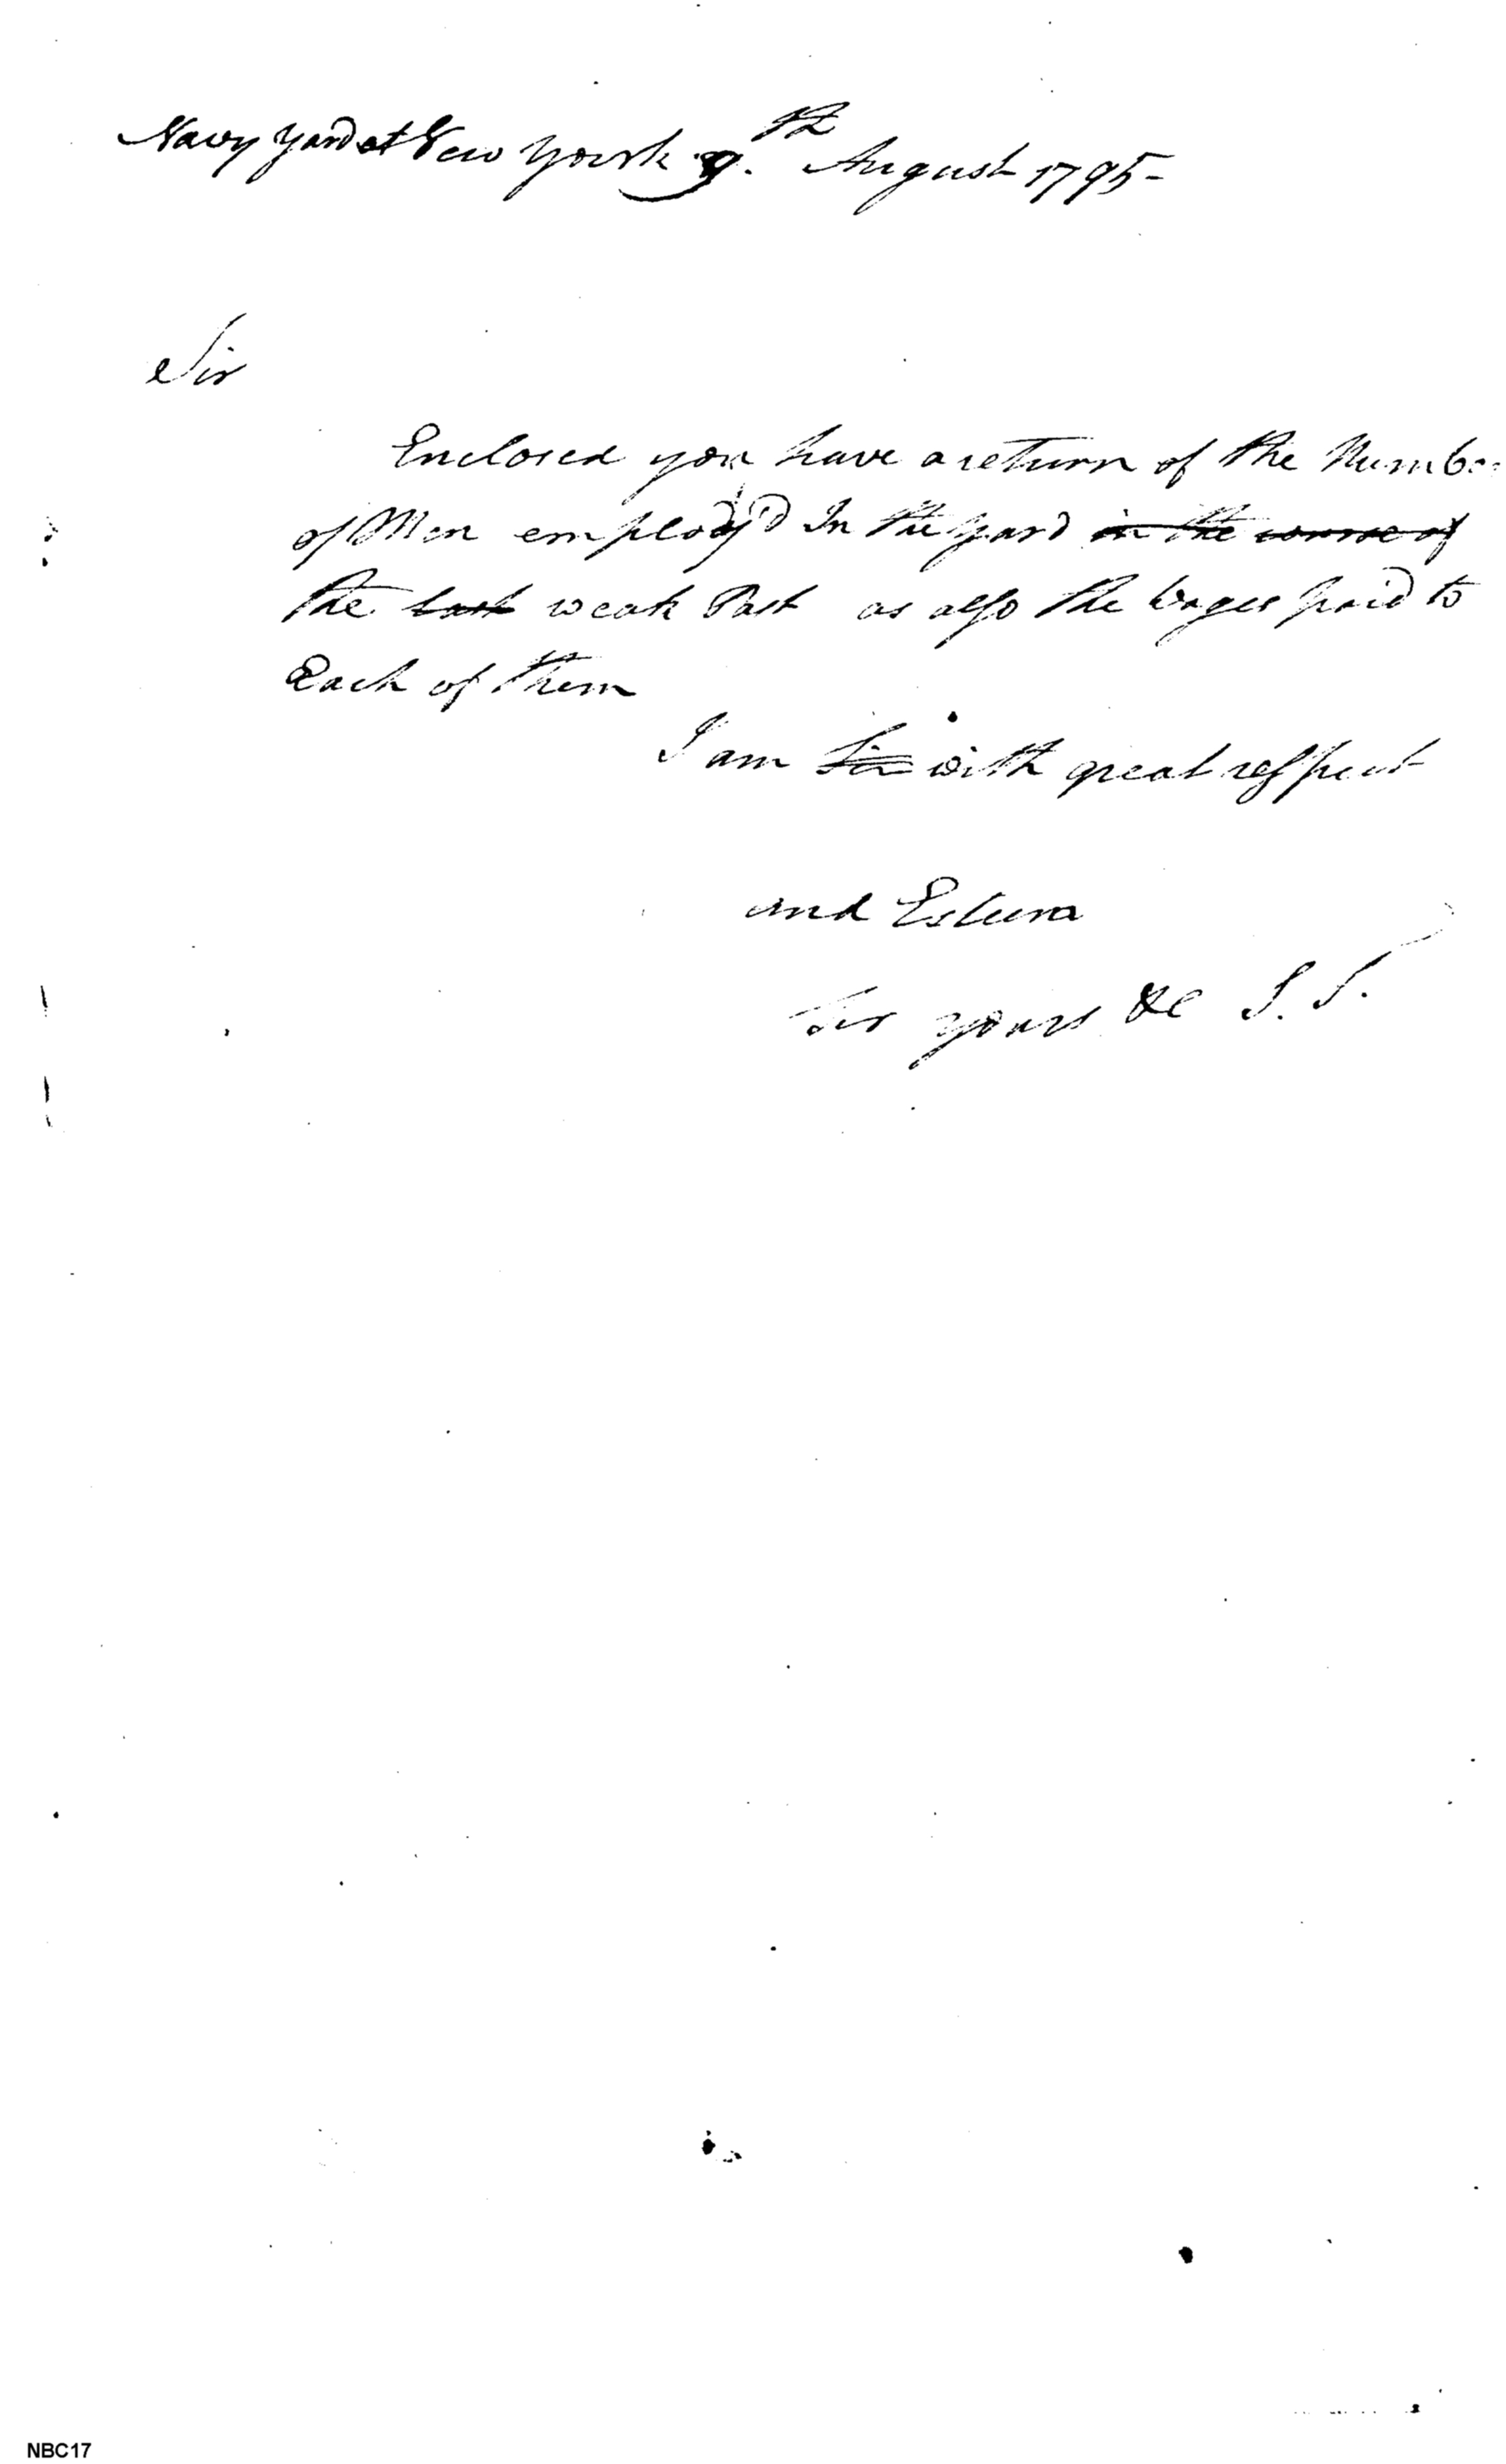 Navy Yard at New York 9.th August 1795-
Sir
Enclosed you have a return of the Numbe
of Men employ'd In the yard in the course of
the last weak Past as also the Wages paid to
Each of them
I am Sir with great respect
and Esteem
Sir yours &c J. T.
NBC17